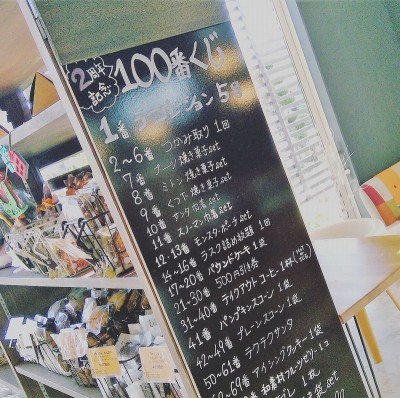 2周年記念
100番くじ
1番 コレクション 5g
2~6番 つかみ取り 1回
7番 ブーツ焼き菓子set
8番 ミトン焼き菓子set
9番 くつ下焼き菓子set
10番 サンタ巾着set
11番 スノーマン巾着set
12・13番 モンスターポーチset
14~16番 ラスク詰め放題 1回
17~20番 パウンドケーキ1袋
21~30番 500円引き券
31~40番 テイクアウトコーヒー1杯
41番 パンプキンスコーン1袋
42~49番 プレーンスコーン1袋
50~61番 ラクラクサンタ
62~69番 アイシングクッキー1袋
番 和素材フルーツゼリー1コ
1枚
set